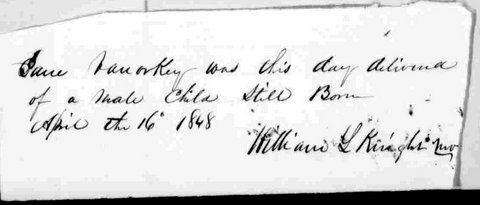 Jane Vanorkey was this day delivered
of a Male Child Still Born
April the 16 1848
William L Knight